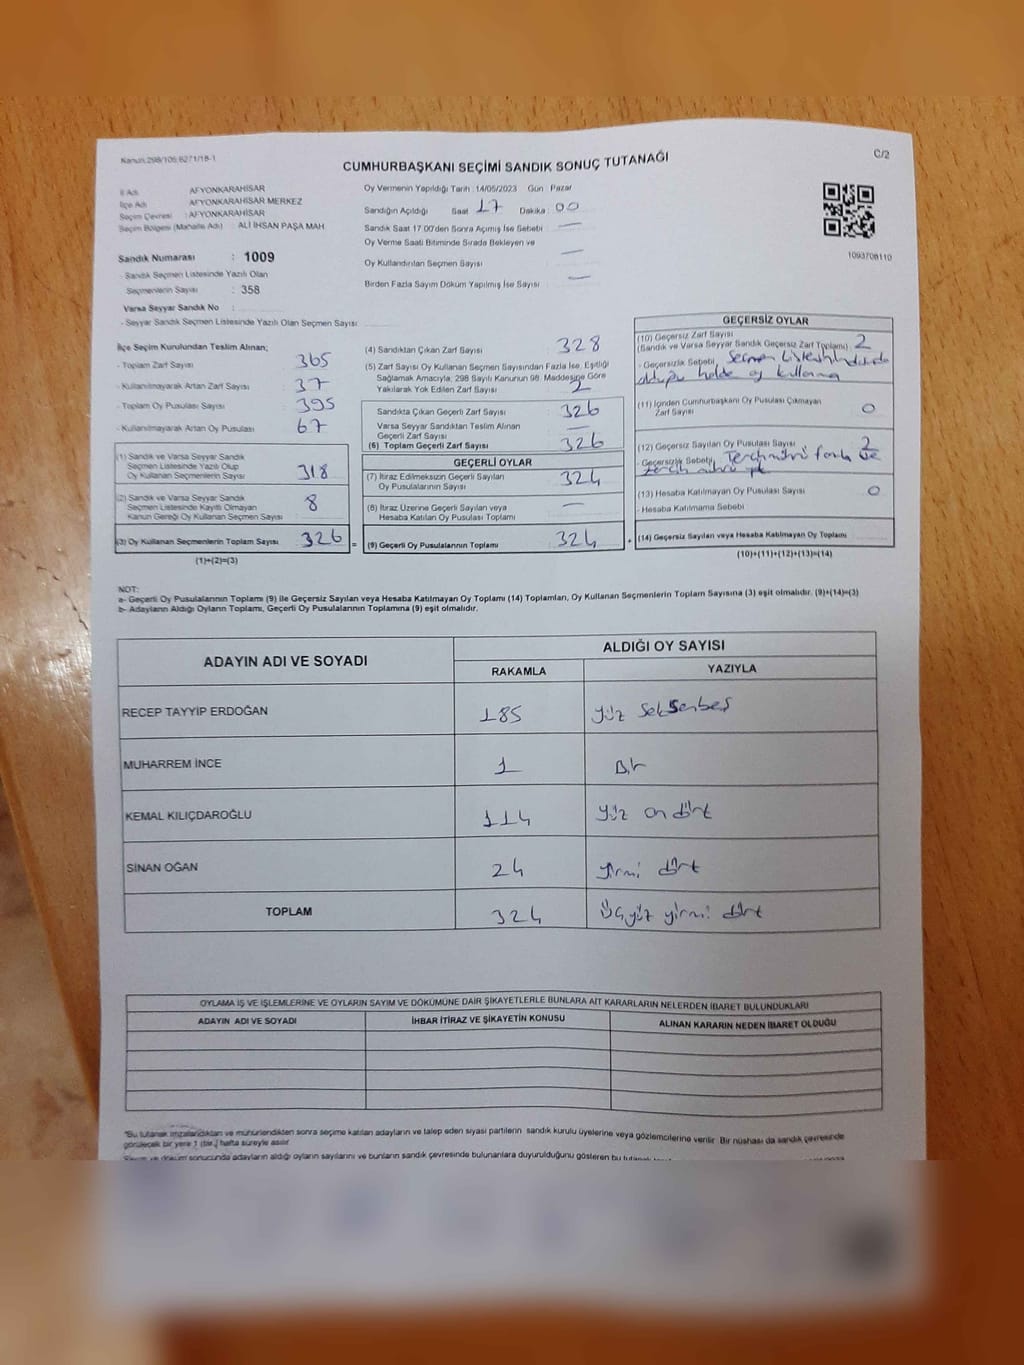 Kanun:298/105,6271/18-1
C/2
CUMHURBAŞKANI SEÇİMİ SANDIK SONUÇ TUTANAĞI
İl Adı AFYONKARAHİSAR
İlçe Adı AFYONKARAHİSAR MERKEZ
Seçim Çevresi : AFYONKARAHİSAR
Seçim Bölgesi (Mahalle Adı) : ALİ İHSAN PAŞA MAH
Sandık Numarası : 1009
- Sandık Seçmen Listesinde Yazılı Olan
Seçmenlerin Sayısı : 358
Varsa Seyyar Sandık No :
- Seyyar Sandık Seçmen Listesinde Yazılı Olan Seçmen Sayısı :
Oy Vermenin Yapıldığı Tarih : 14/05/2023 Gün : Pazar
Sandığın Açıldığı Saat : 17 Dakika : 00
Sandık Saat 17.00'den Sonra Açımış İse Sebebi : —
Oy Verme Saati Bitiminde Sırada Bekleyen ve
Oy Kullandırılan Seçmen Sayısı : —
Birden Fazla Sayım Döküm Yapılmış İse Sayısı : —
1093708110
İlçe Seçim Kurulundan Teslim Alınan;
- Toplam Zarf Sayısı : 365
- Kullanılmayarak Artan Zarf Sayısı : 37
- Toplam Oy Pusulası Sayısı : 395
- Kullanılmayarak Artan Oy Pusulası : 67
(1) Sandık ve Varsa Seyyar Sandık
Seçmen Listesinde Yazılı Olup
Oy Kullanan Seçmenlerin Sayısı : 318
(2) Sandık ve Varsa Seyyar Sandık
Seçmen Listesinde Kayıtlı Olmayan
Kanun Gereği Oy Kullanan Seçmen Sayısı : 8
(3) Oy Kullanan Seçmenlerin Toplam Sayısı : 326
(1)+(2)=(3)
(4) Sandıktan Çıkan Zarf Sayısı : 328
(5) Zarf Sayısı Oy Kullanan Seçmen Sayısından Fazla İse, Eşitliği
Sağlamak Amacıyla, 298 Sayılı Kanunun 98. Maddesine Göre
Yakılarak Yok Edilen Zarf Sayısı : 2
Sandıkta Çıkan Geçerli Zarf Sayısı : 326
Varsa Seyyar Sandıktan Teslim Alınan
Geçerli Zarf Sayısı : —
(6) Toplam Geçerli Zarf Sayısı : 326
GEÇERLİ OYLAR
(7) İtiraz Edilmeksizin Geçerli Sayılan
Oy Pusulalarının Sayısı : 324
(8) İtiraz Üzerine Geçerli Sayılan veya
Hesaba Katılan Oy Pusulası Toplamı : —
= (9) Geçerli Oy Pusulalarının Toplamı : 324
GEÇERSİZ OYLAR
(10) Geçersiz Zarf Sayısı
(Sandık ve Varsa Seyyar Sandık Geçersiz Zarf Toplamı) : 2
- Geçersizlik Sebebi : Seçmen Listesinde
olduğu halde oy kullanma
(11) İçinden Cumhurbaşkanı Oy Pusulası Çıkmayan
Zarf Sayısı : 0
(12) Geçersiz Sayılan Oy Pusulası Sayısı : 2
- Geçersizlik Sebebi : fazla ve
(13) Hesaba Katılmayan Oy Pusulası Sayısı : 0
- Hesaba Katılmama Sebebi
+ (14) Geçersiz Sayılan veya Hesaba Katılmayan Oy Toplamı :
(10)+(11)+(12)+(13)=(14)
NOT:
a- Geçerli Oy Pusulalarının Toplamı (9) ile Geçersiz Sayılan veya Hesaba Katılmayan Oy Toplamı (14) Toplamları, Oy Kullanan Seçmenlerin Toplam Sayısına (3) eşit olmalıdır. (9)+(14)=(3)
b- Adayların Aldığı Oyların Toplamı, Geçerli Oy Pusulalarının Toplamına (9) eşit olmalıdır.
ADAYIN ADI VE SOYADI ALDIĞI OY SAYISI
RAKAMLA YAZIYLA
RECEP TAYYİP ERDOĞAN 185 Yüz Seksenbeş
MUHARREM İNCE 1 Bir
KEMAL KILIÇDAROĞLU 114 Yüz on dört
SİNAN OĞAN 24 Yirmi dört
TOPLAM 324 Üçyüz yirmi dört
OYLAMA İŞ VE İŞLEMLERİNE VE OYLARIN SAYIM VE DÖKÜMÜNE DAİR ŞİKAYETLERLE BUNLARA AİT KARARLARIN NELERDEN İBARET BULUNDUKLARI
ADAYIN ADI VE SOYADI İHBAR İTİRAZ VE ŞİKAYETİN KONUSU ALINAN KARARIN NEDEN İBARET OLDUĞU
*Bu tutanak imzalandıktan ve mühürlendikten sonra seçime katılan adayların ve talep eden siyasi partilerin sandık kurulu üyelerine veya gözlemcilerine verilir. Bir nüshası da sandık çevresinde
görülecek bir yere 1 (bir) hafta süreyle asılır.
Seçim ve döküm sonucunda adayların aldığı oyların sayılarını ve bunların sandık çevresinde bulunanlara duyurulduğunu gösteren bu